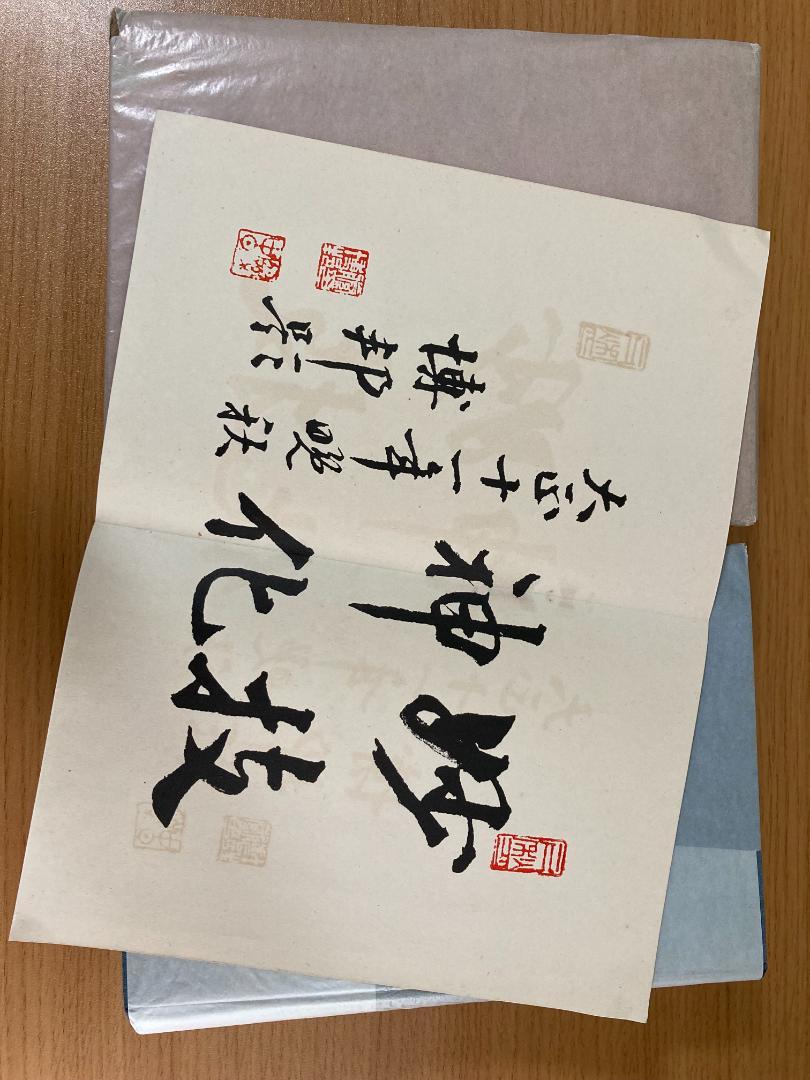 妙技
神化
大正十一年晩秋
博邦題